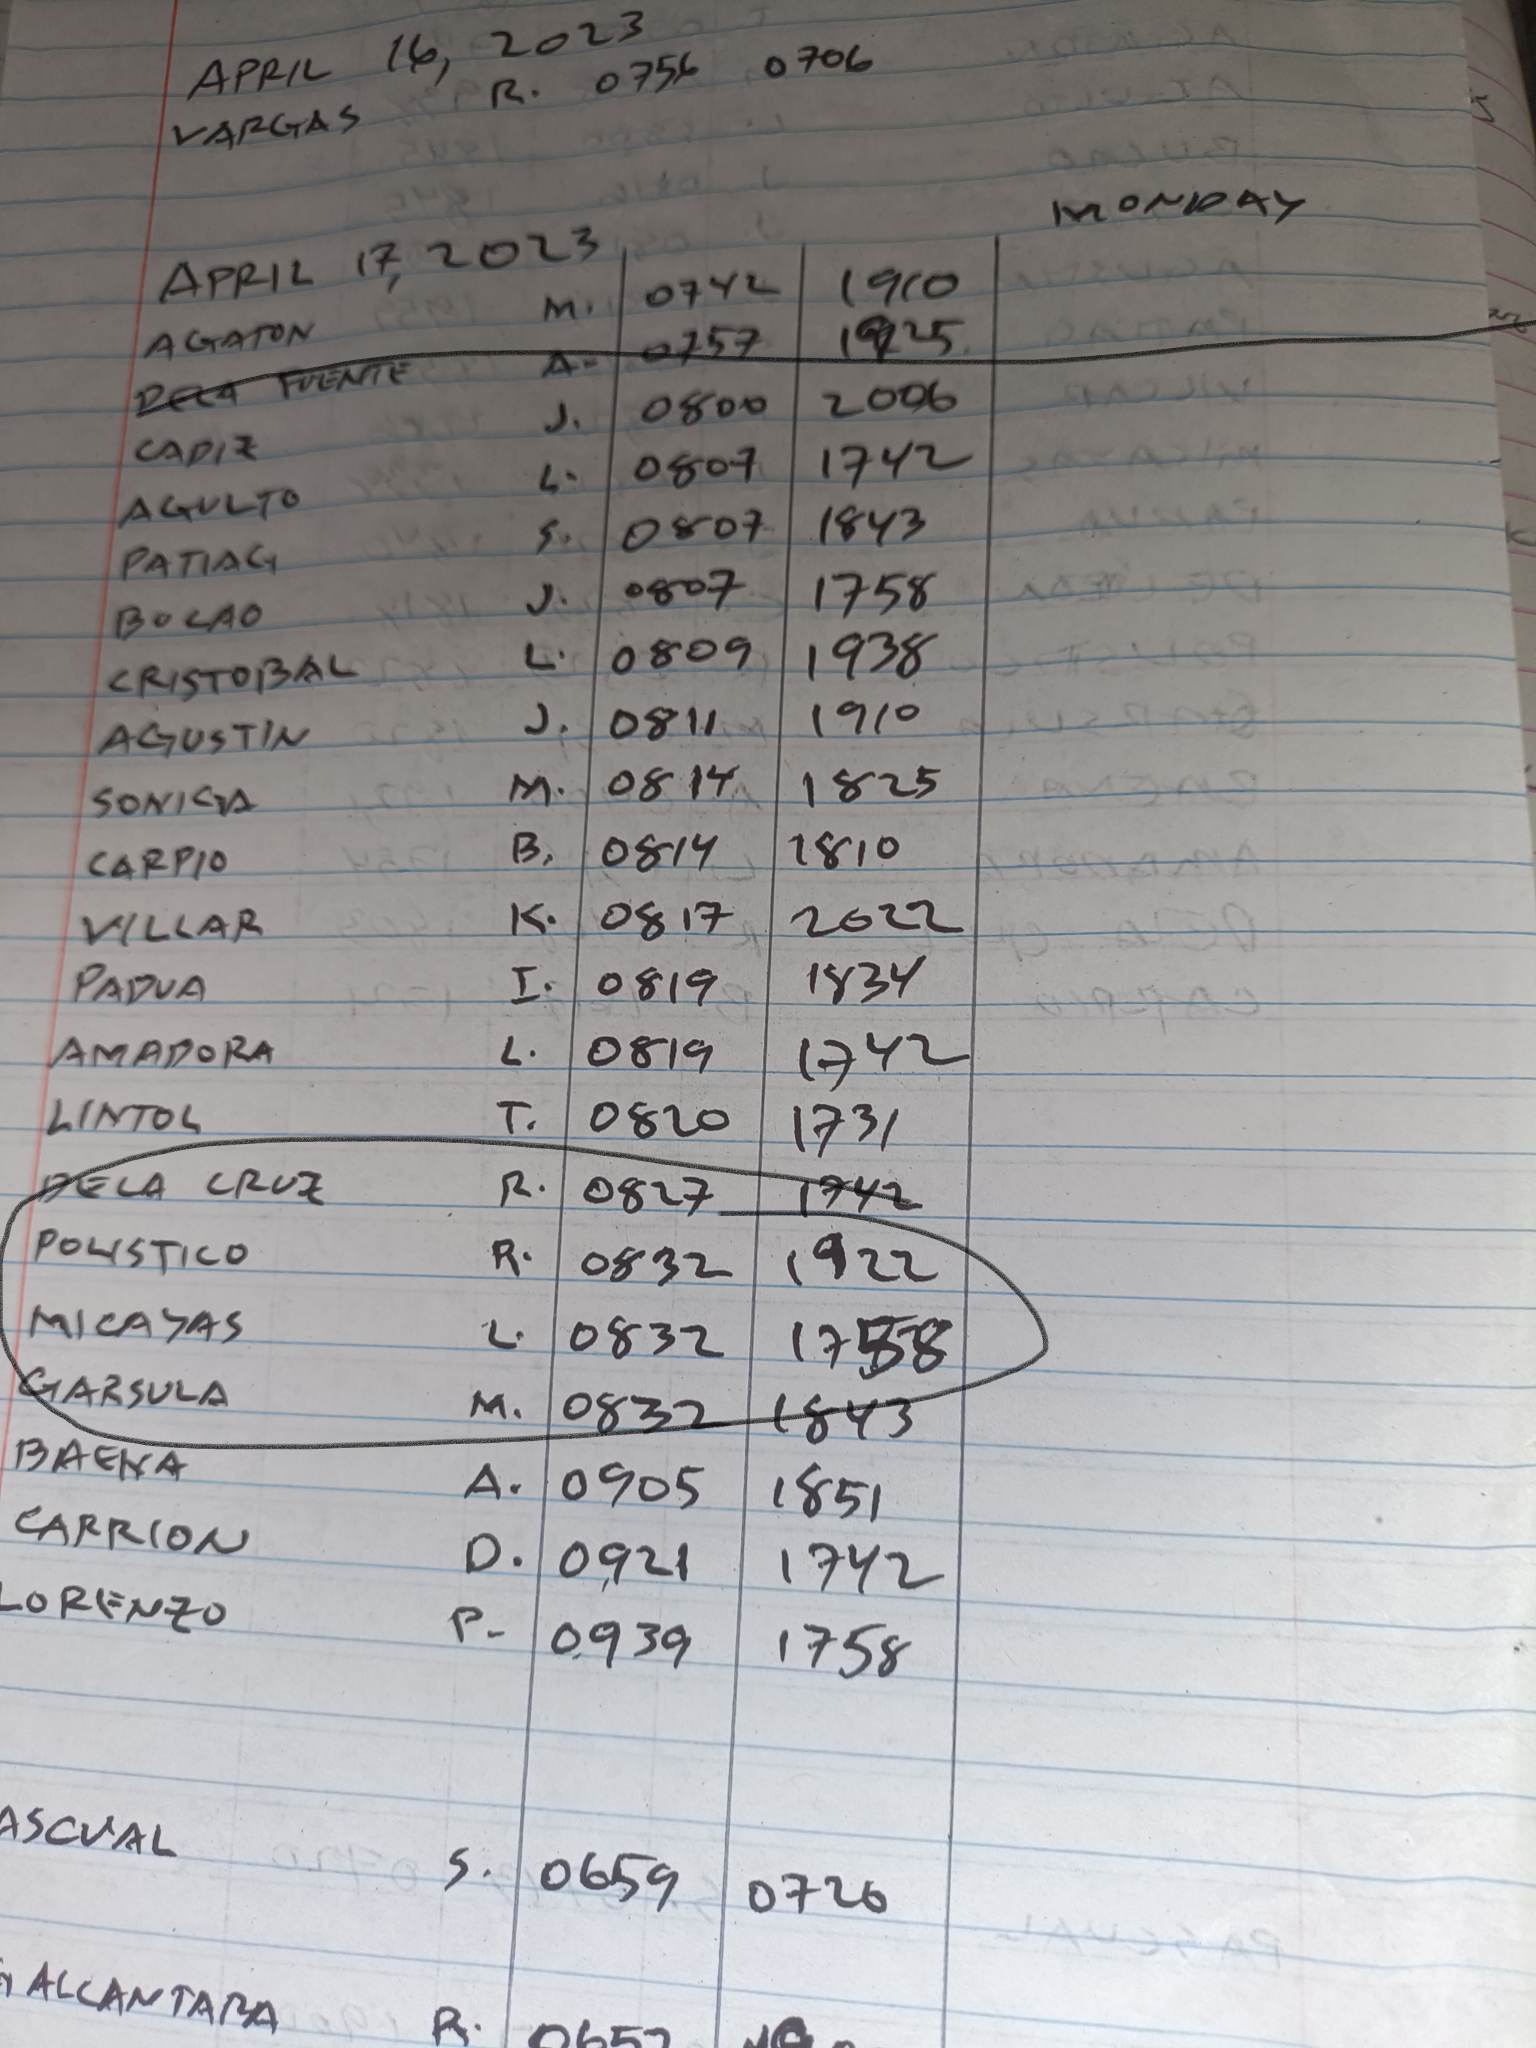 APRIL 16, 2023
VARGAS R. 0756 0706
MONDAY
APRIL 17, 2023
AGATON M. 0742 1910
DELA FUENTE A. 0757 1925
CADIZ J. 0800 2006
AGULTO L. 0807 1742
PATIAG S. 0807 1843
BOLAO J. 0807 1758
CRISTOBAL L. 0809 1938
AGUSTIN J. 0811 1910
SONIGA M. 0814 1825
CARPIO B. 0814 1810
VILLAR K. 0817 2022
PADUA I. 0819 1834
AMADORA L. 0819 1742
LINTOL T. 0820 1731
DELA CRUZ R. 0827 1742
POLISTICO R. 0832 1922
MICAYAS L. 0832 1758
GARSULA M. 0832 1843
BAENA A. 0905 1851
CARRION D. 0921 1742
LORENZO P. 0939 1758
ASCUAL S. 0659 0726
ALCANTARA R.